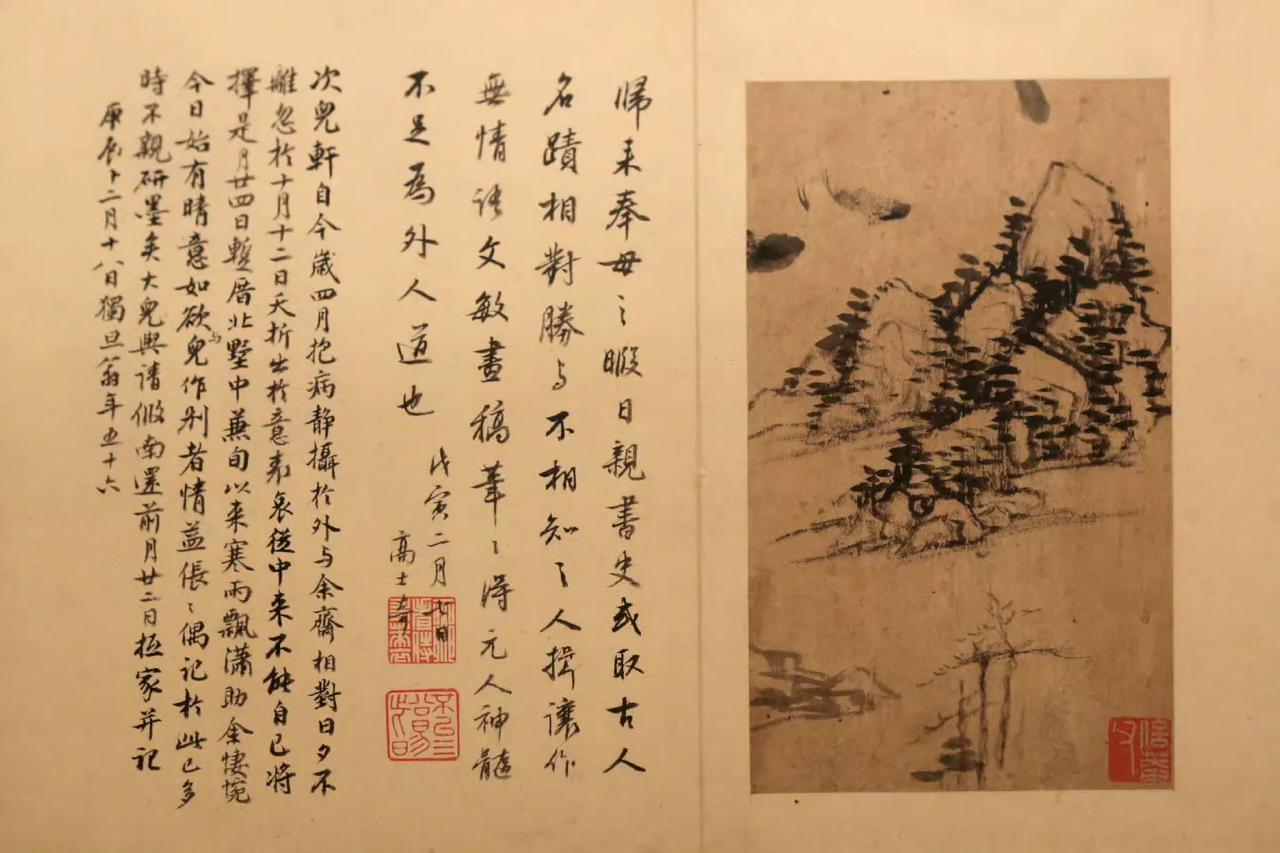 歸来奉母之暇日親書史或取古人
名蹟相對勝与不相知之人揖讓作
無情語文敏畫稿筆筆得元人神髓
不足為外人道也
戊寅二月七日
高士奇
次兒軒自今歲四月抱病静攝於外与余齋相對日夕不
離忽於十月十二日夭折出於意表哀從中来不能自已将
擇是月廿四日暫厝北墅中兼旬以来寒雨飄瀟助余悽惋
今日始有晴意如欲与兒作别者情益倀倀偶記於此已多
時不親研墨矣大兒輿請假南還前月廿二日抵家并記
庚辰十二月十八日獨旦翁年五十六